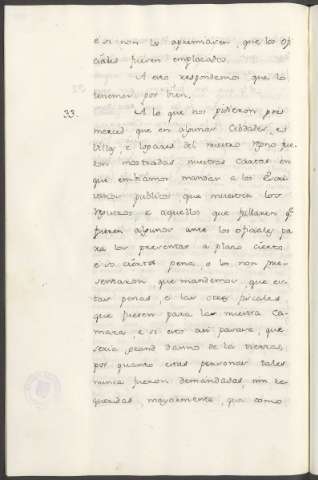 e si non los apremiaren, que los ofi
ciales fueren emplasados.
A esto respondemos que lo
tenemos por bien.
33. A lo que nos pidieron por
merced que en algunas Cibdades, e
villas, e logares del nuestro regno fue
ron mostradas nuestras Cartas en
que embiamos mandar a los Escri
vanos publicos que muestren los
registros, e aquellos que fallaren qe
fueron algunos ante los oficiales pa
ra los presentar a plazo cierto
e so cierta pena, e los non pre
sentaron, que mandemos, que es
tas penas, e las otras fiscales,
que fuesen para la nuestra Ca
mara, e si esto asi pasare, que
seria grand danno de la tierra,
por quanto estas personas tales
nunca fueron demandadas, nin re
queridas, mayormente, que como